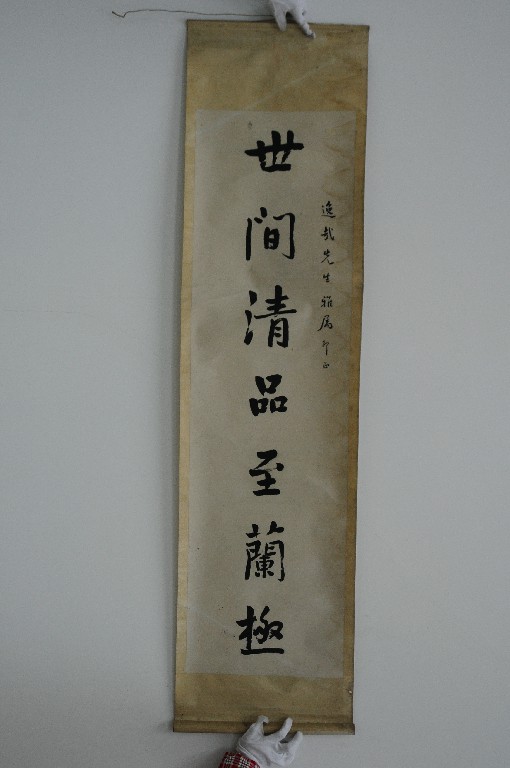 逸哉先生雅属即正
世间清品至蘭極